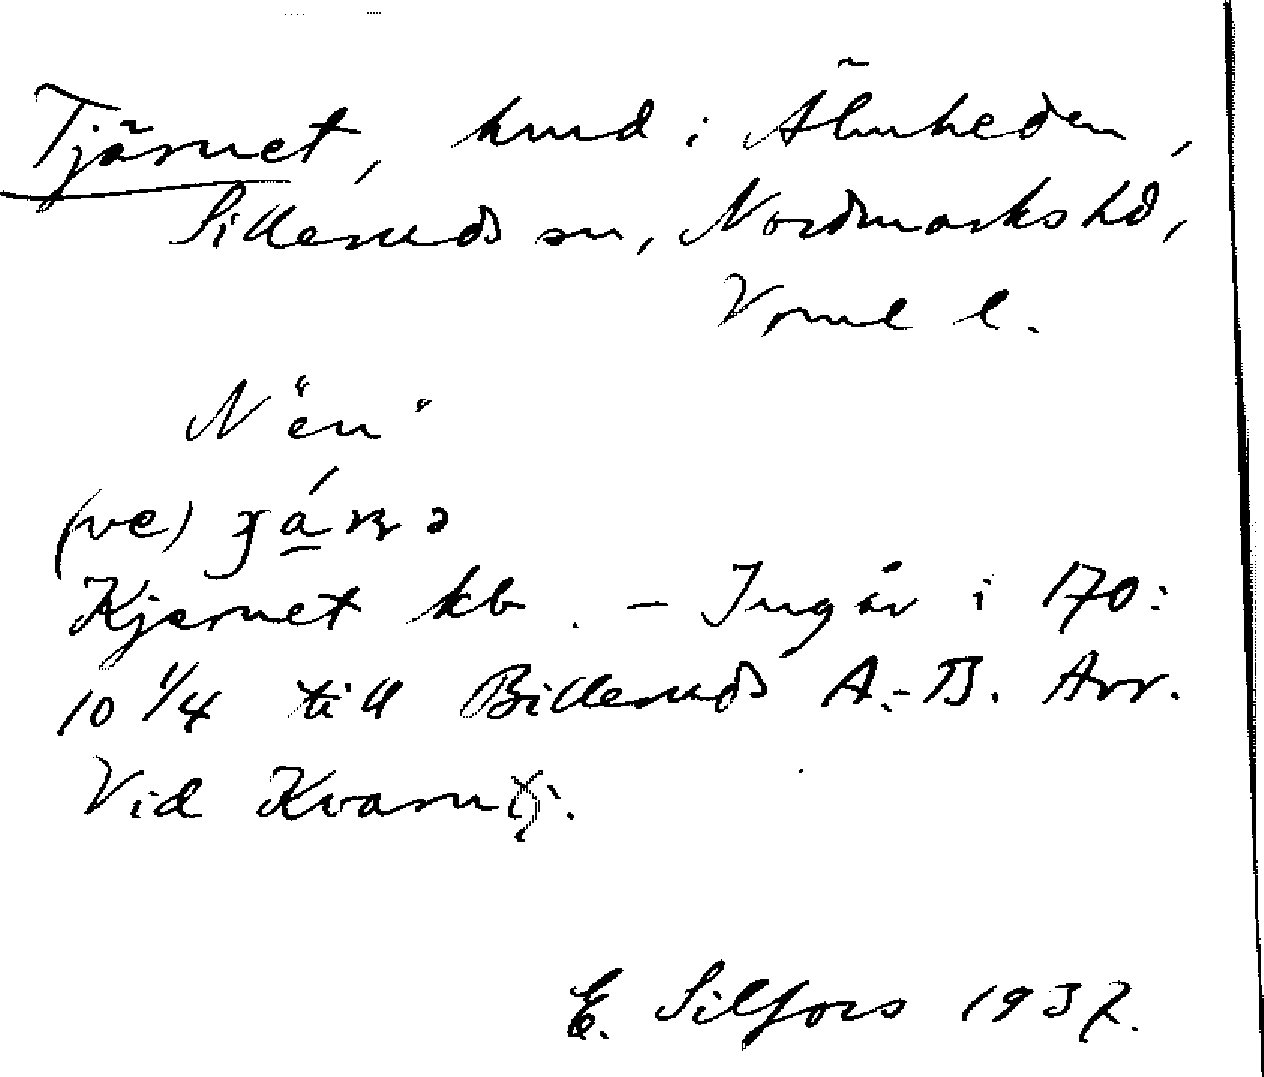 Tjärnet, hmd i Älmheden,
Silleruds sn, Nordmarks hd,
Vrml l.
N "en"
(ve)
Kjernet kb. – Ingår i 170:
10 1/4 till Billeruds A.-B. Arr.
Vid Kvarntj.
E. Silfors 1937.